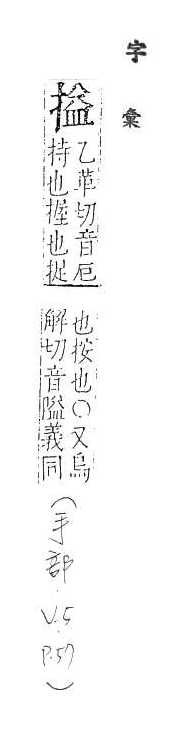 字彙
搤
乙革切音厄
持也握也捉
也按也○又烏
解切音隘義同
(手部.V.5.P.57)